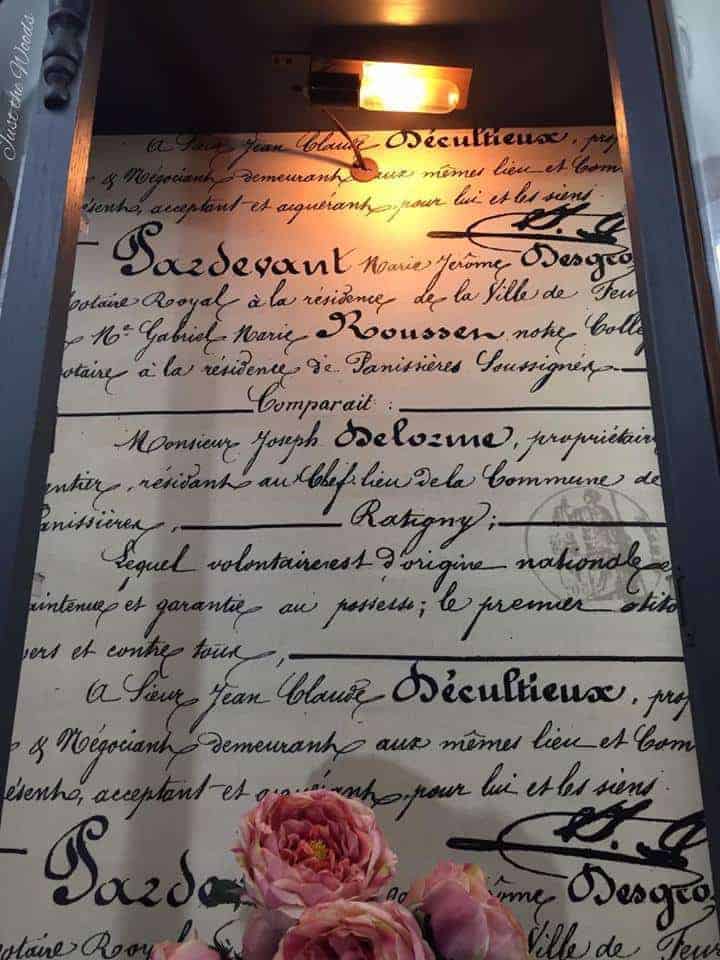 Just the Woods
A Sieur Jean Claude Décultieux, pro
& Négociant demeurant aux mêmes lieu et Com
ésent, acceptant et aiquérant pour lui et les siens.
Pardevant Marie Jerôme Desgro
Notaire Royal à la résidence de la Ville de Feu
& Me Gabriel Marie Roussen notre Collè
otaire à la résidence de Panissières Soussignés
Comparait :
Monsieur Joseph Delorme, propriétair
entier, résidant au Chef lieu de la Commune de
Panissières, Ratigny;
Lequel volontairerest d'origine nationale e
aintenue et garantie au possesso; le premier
vers et contre tous,
A Sieur Jean Claude Décultieux, prop
& Négociant demeurant aux mêmes lieu et Com
ésent, acceptant et aiquérant pour lui et les siens.
Pardev Jerôme Desgro
Notaire Roya Ville de Feu